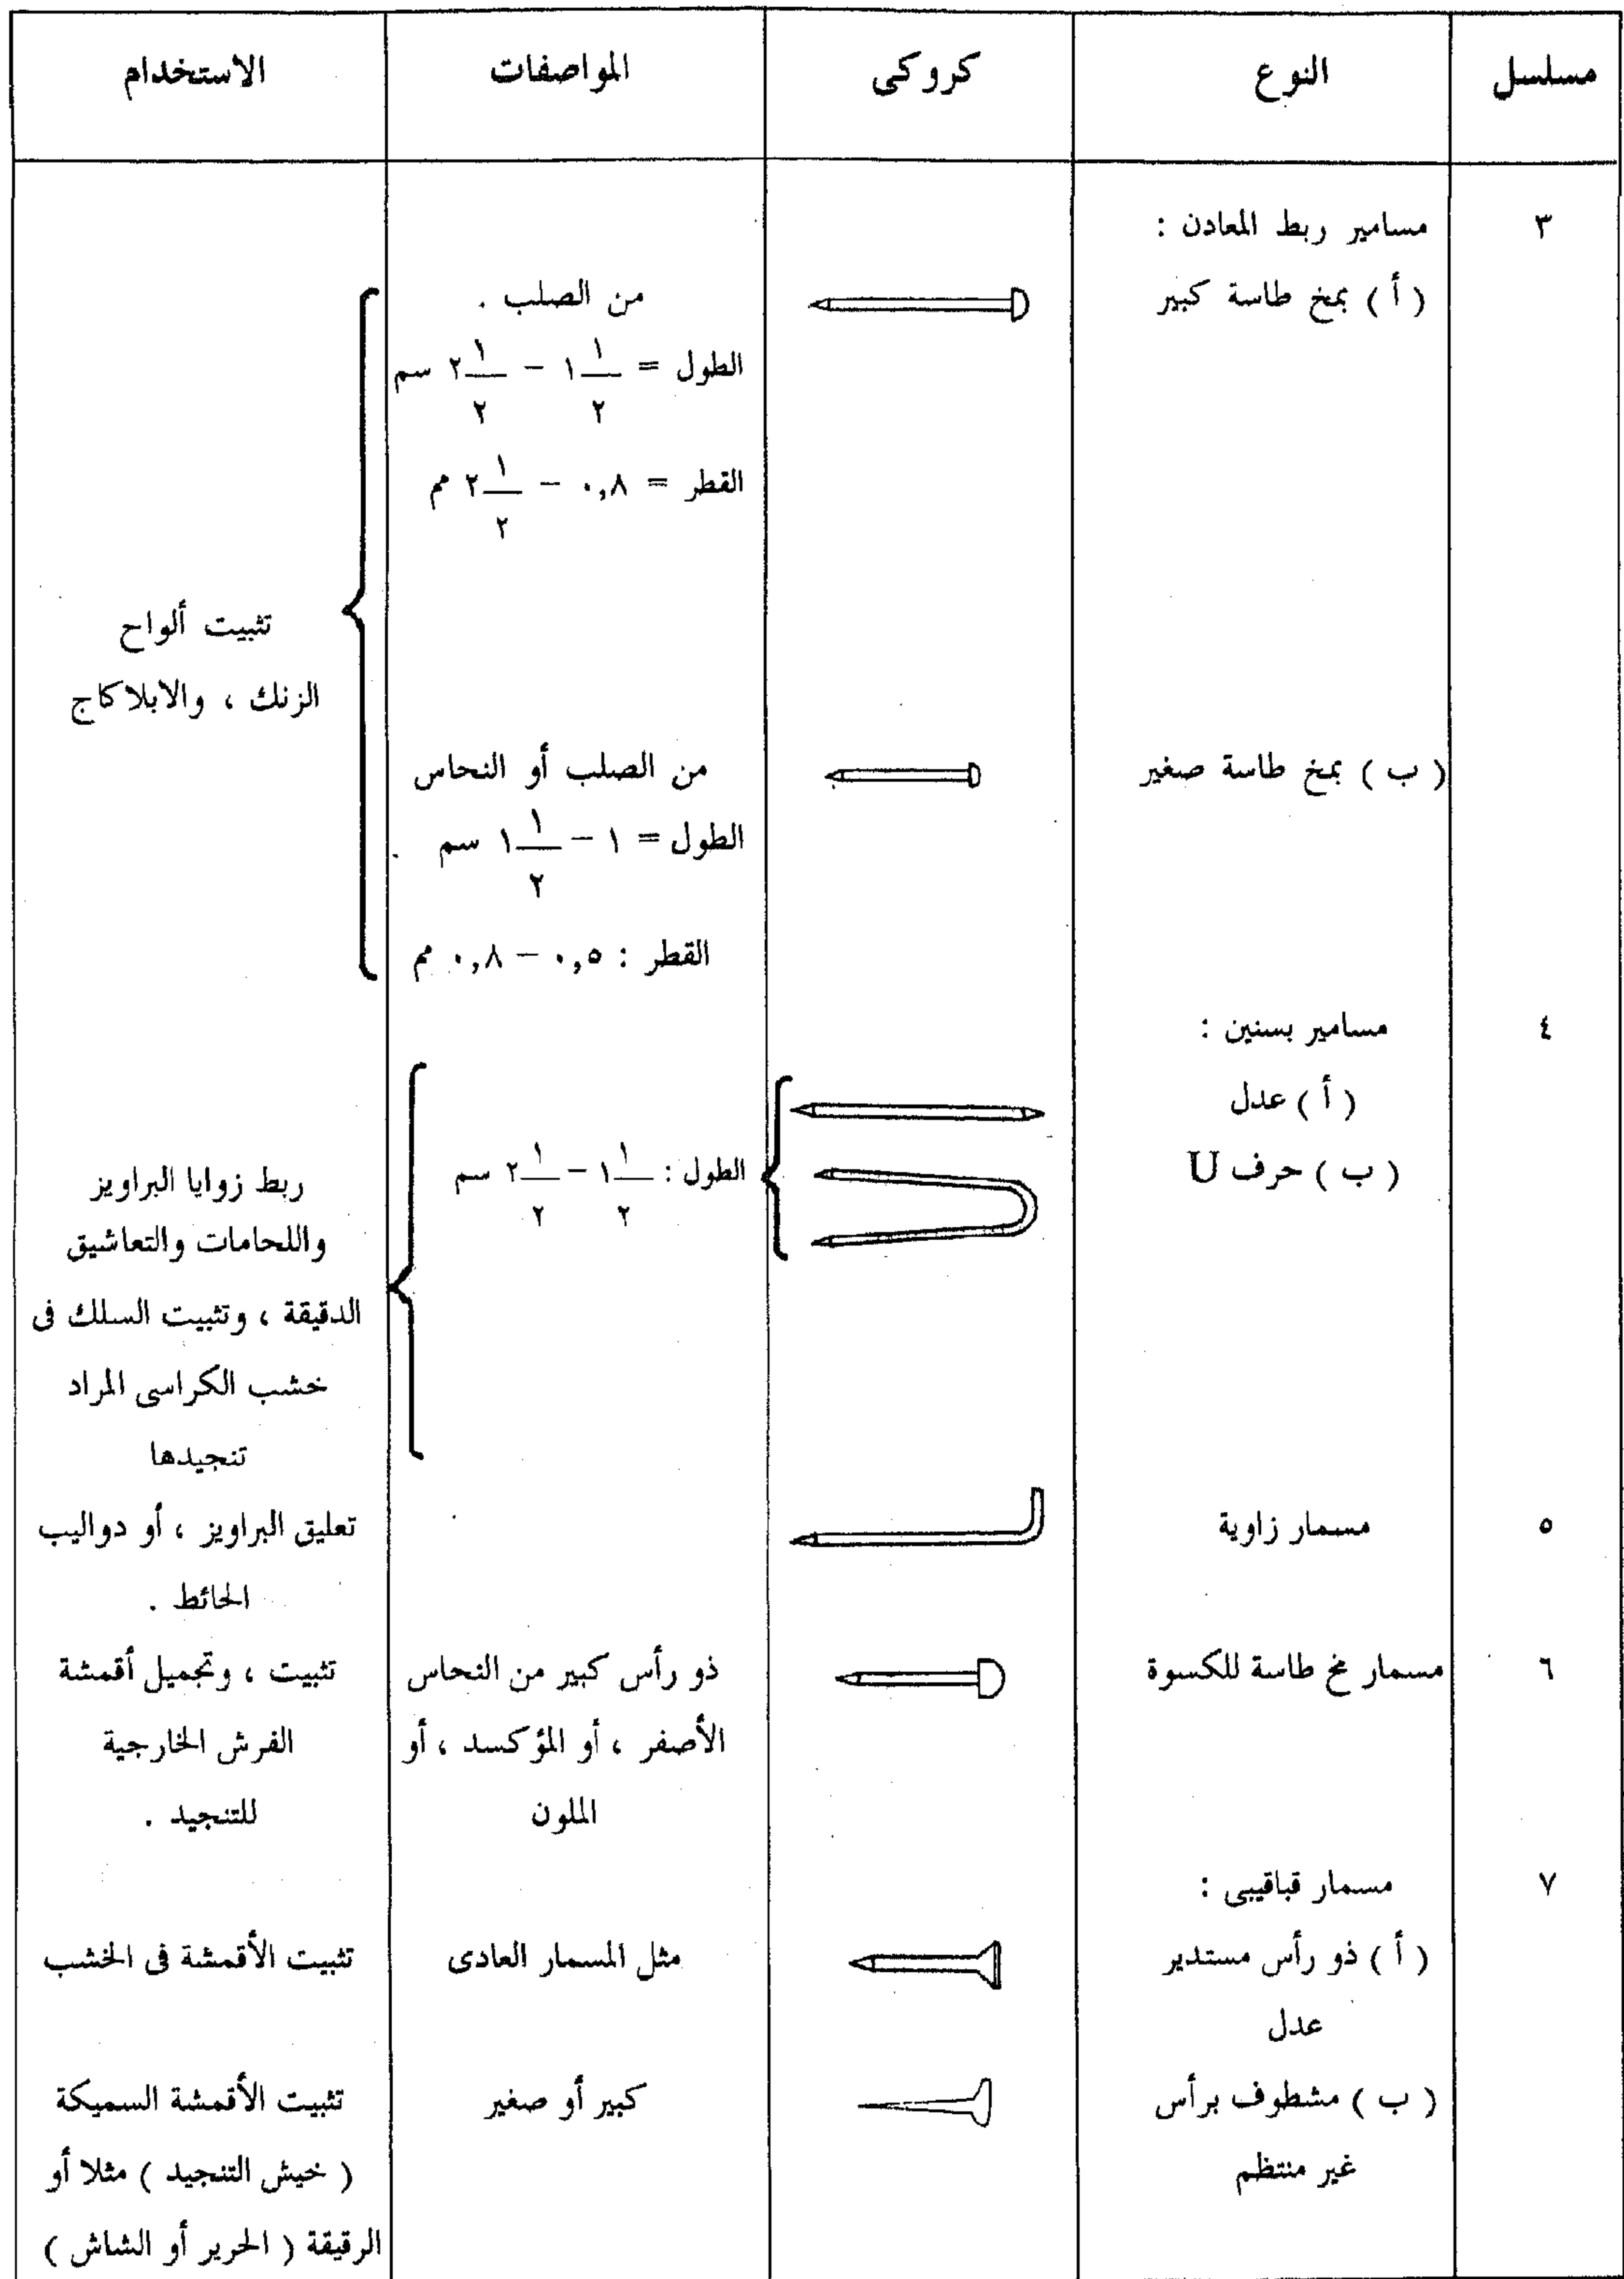 مسلسل النوع كروكى المواصفات الاستخدام
٣ مسامير ربط المعادن :
( أ ) بمخ طاسة كبير
من الصلب .
الطول = ١ ١/٢ – ٢ ١/٢ سم
القطر = ٠,٨ – ٢ ١/٢ مم
تثبيت ألواح
الزنك ، والابلاكاج
( ب ) بمخ طاسة صغير
من الصلب أو النحاس
الطول = ١ – ١ ١/٢ سم
القطر : ٠,٥ – ٠,٨ مم
٤ مسامير بسنين :
( أ ) عدل
( ب ) حرف U
الطول : ١ ١/٢ – ٢ ١/٢ سم
ربط زوايا البراويز
واللحامات والتعاشيق
الدقيقة ، وتثبيت السلك فى
خشب الكراسى المراد
تنجيدها
٥ مسمار زاوية
تعليق البراويز ، أو دواليب
الحائط .
٦ مسمار مخ طاسة للكسوة
ذو رأس كبير من النحاس
الأصفر ، أو المؤكسد ، أو
الملون
تثبيت ، وتجميل أقمشة
الفرش الخارجية
للتنجيد .
٧ مسمار قباقيبى :
( أ ) ذو رأس مستدير
عدل
مثل المسمار العادى
تثبيت الأقمشة فى الخشب
( ب ) مشطوف برأس
غير منتظم
كبير أو صغير
تثبيت الأقمشة السميكة
( خيش التنجيد ) مثلا أو
الرقيقة ( الحرير أو الشاش )